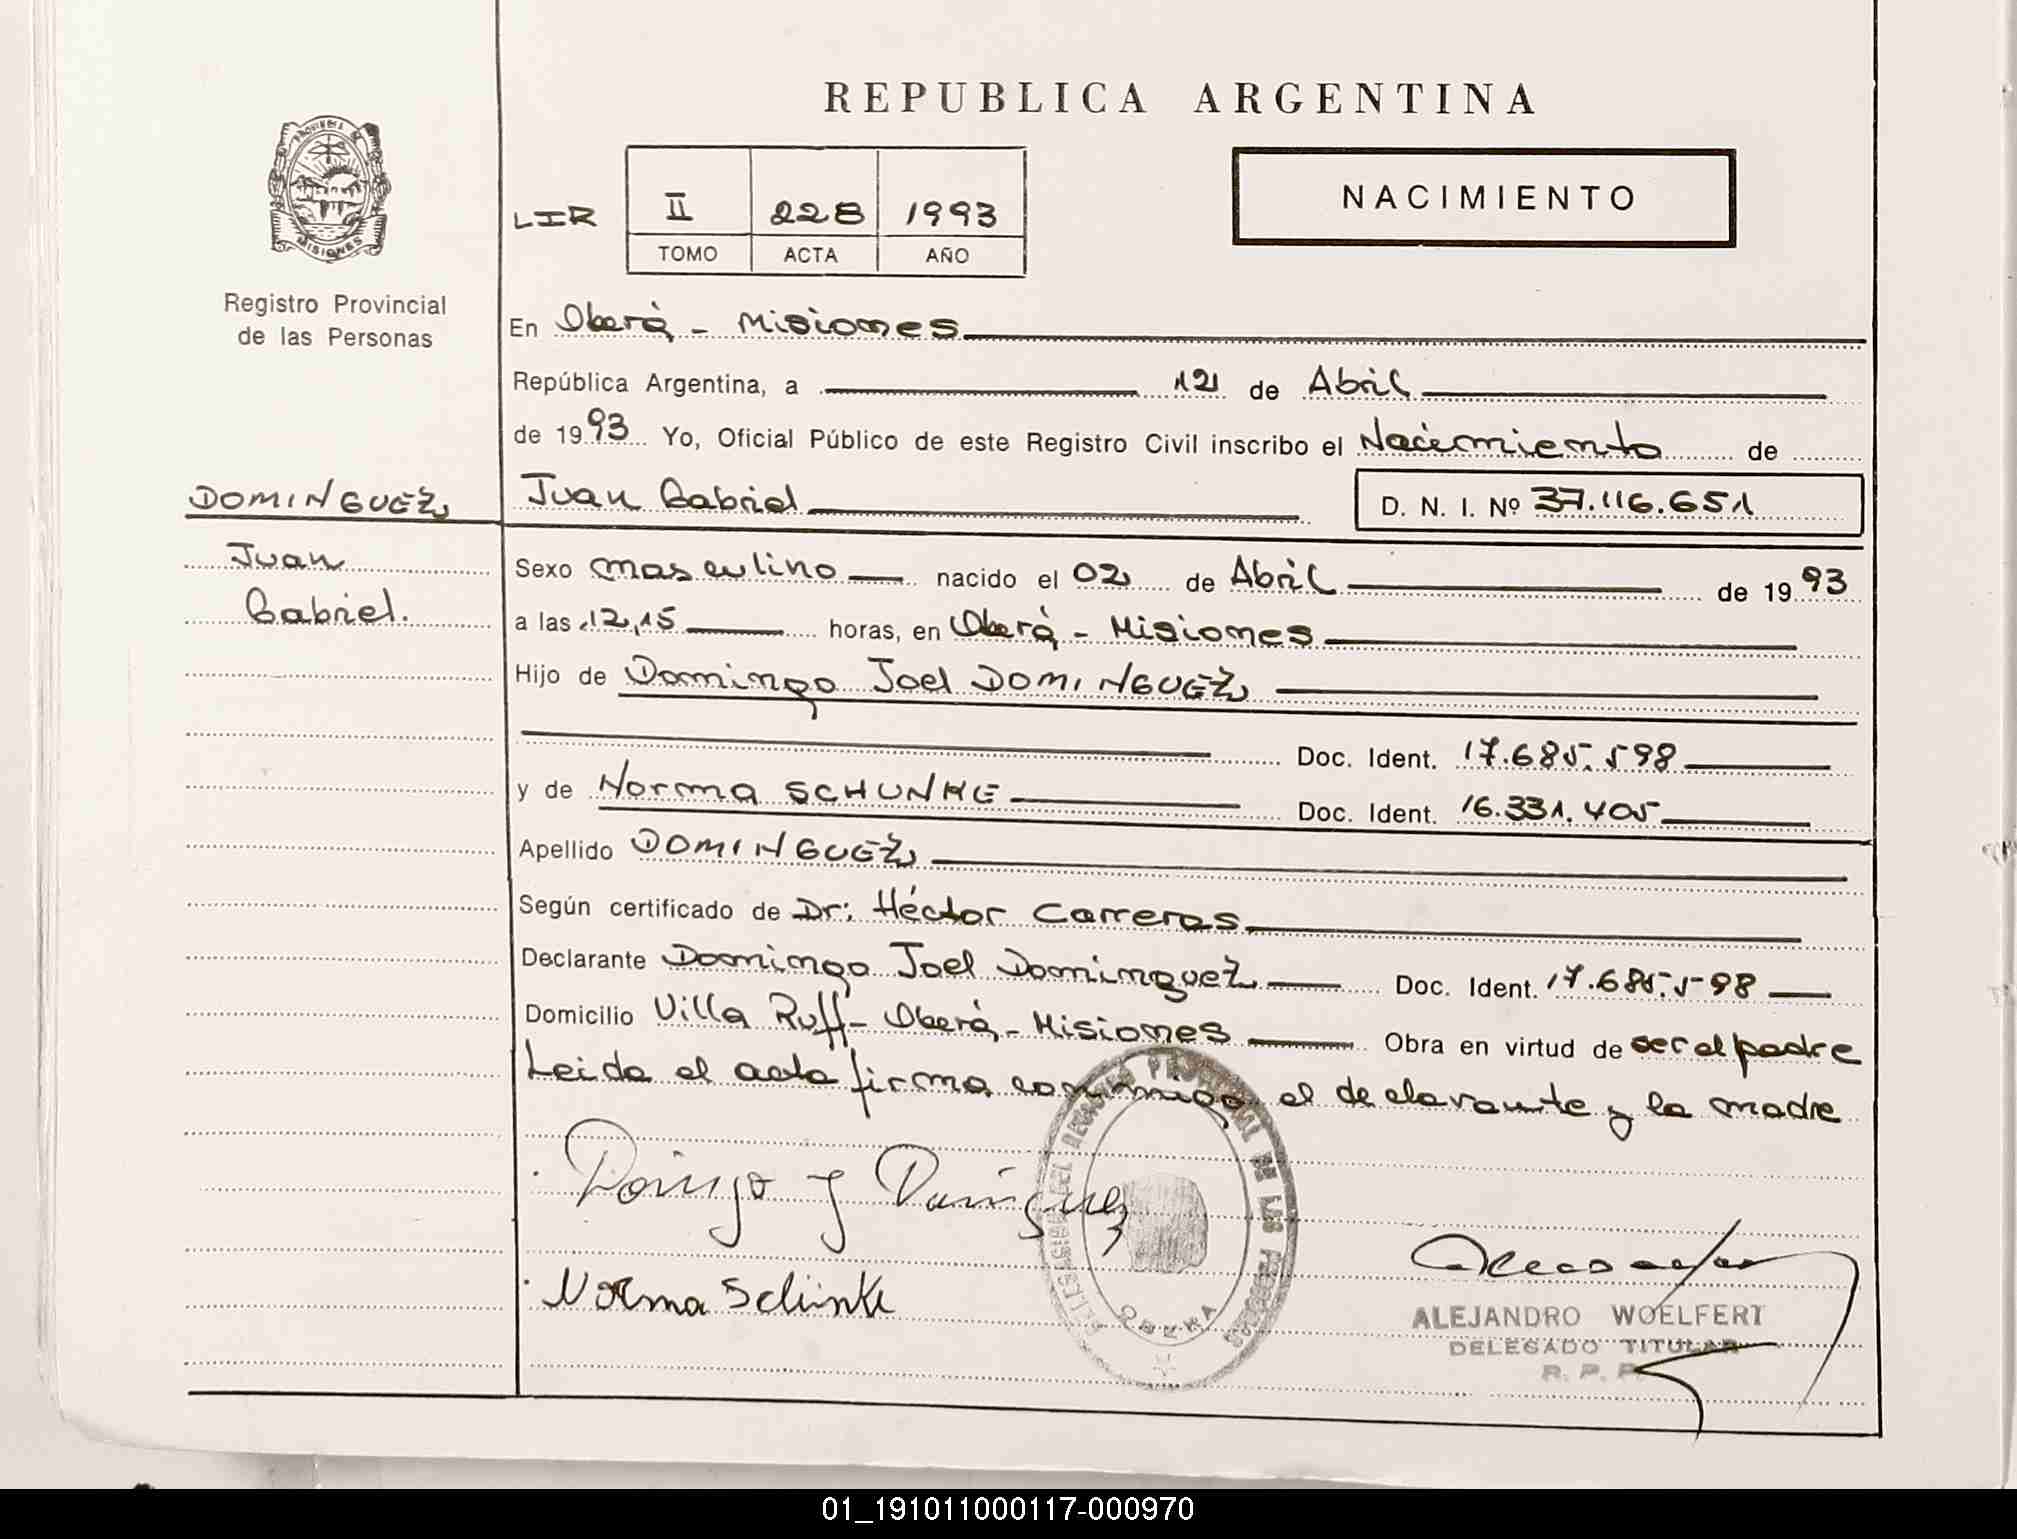 REPUBLICA ARGENTINA
PROVINCIA DE
MISIONES
Registro Provincial
de las Personas
LIR II 228 1993
TOMO ACTA AÑO
NACIMIENTO
En Oberá - Misiones
República Argentina, a 12 de Abril
de 1993 Yo, Oficial Público de este Registro Civil inscribo el Nacimiento de
DOMINGUEZ
Juan
Gabriel.
Juan Gabriel D. N. I. Nº 37.116.651
Sexo masculino nacido el 02 de Abril de 1993
a las 12,15 horas, en Oberá - Misiones
Hijo de Domingo Joel DOMINGUEZ
Doc. Ident. 17.685.598
y de Norma SCHUNKE Doc. Ident. 16.331.405
Apellido DOMINGUEZ
Según certificado de Dr: Héctor Carreras
Declarante Domingo Joel Dominguez Doc. Ident. 17.685.598
Domicilio Villa Ruff - Oberá - Misiones Obra en virtud de ser el padre
Leida el acta firma conmigo el declarante y la madre
Domingo J Dominguez
Norma Schünke
DEL REGISTRO PROVINCIAL DE LAS PERSONAS
OBERA
ALEJANDRO WOELFERT
DELEGADO TITULAR
R. P. P.
01_191011000117-000970